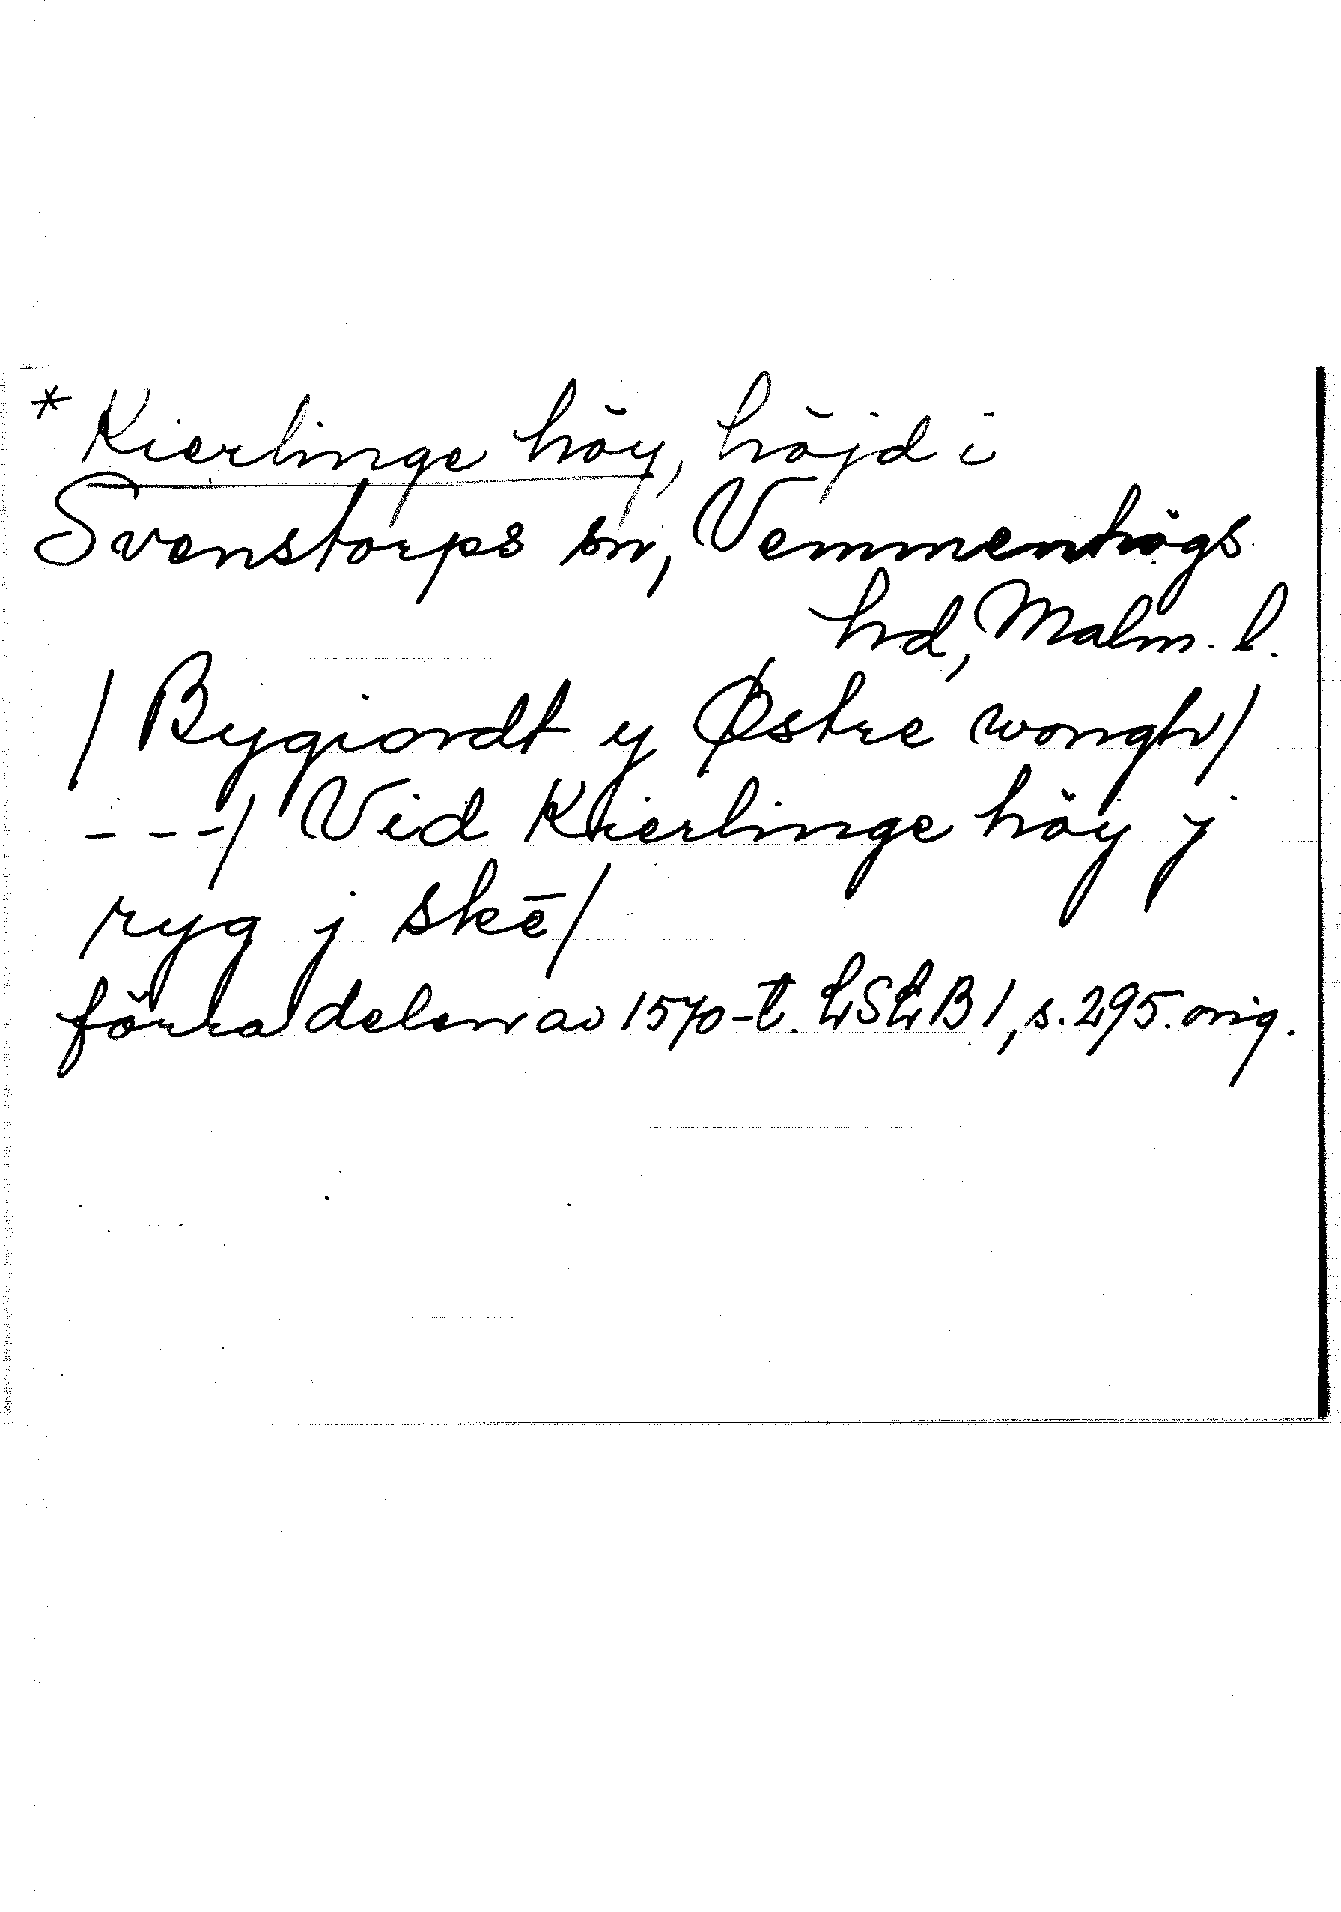 * Kierlinge höy, höjd i
Svenstorps sn, Vemmenhögs
hd, Malm. l.
/ Bygiordt y Østre wongh/
---/ Vid Kierlinge höy j
ryg j skē/
förra delen av 1570-t. LSLB 1, s. 295. orig.